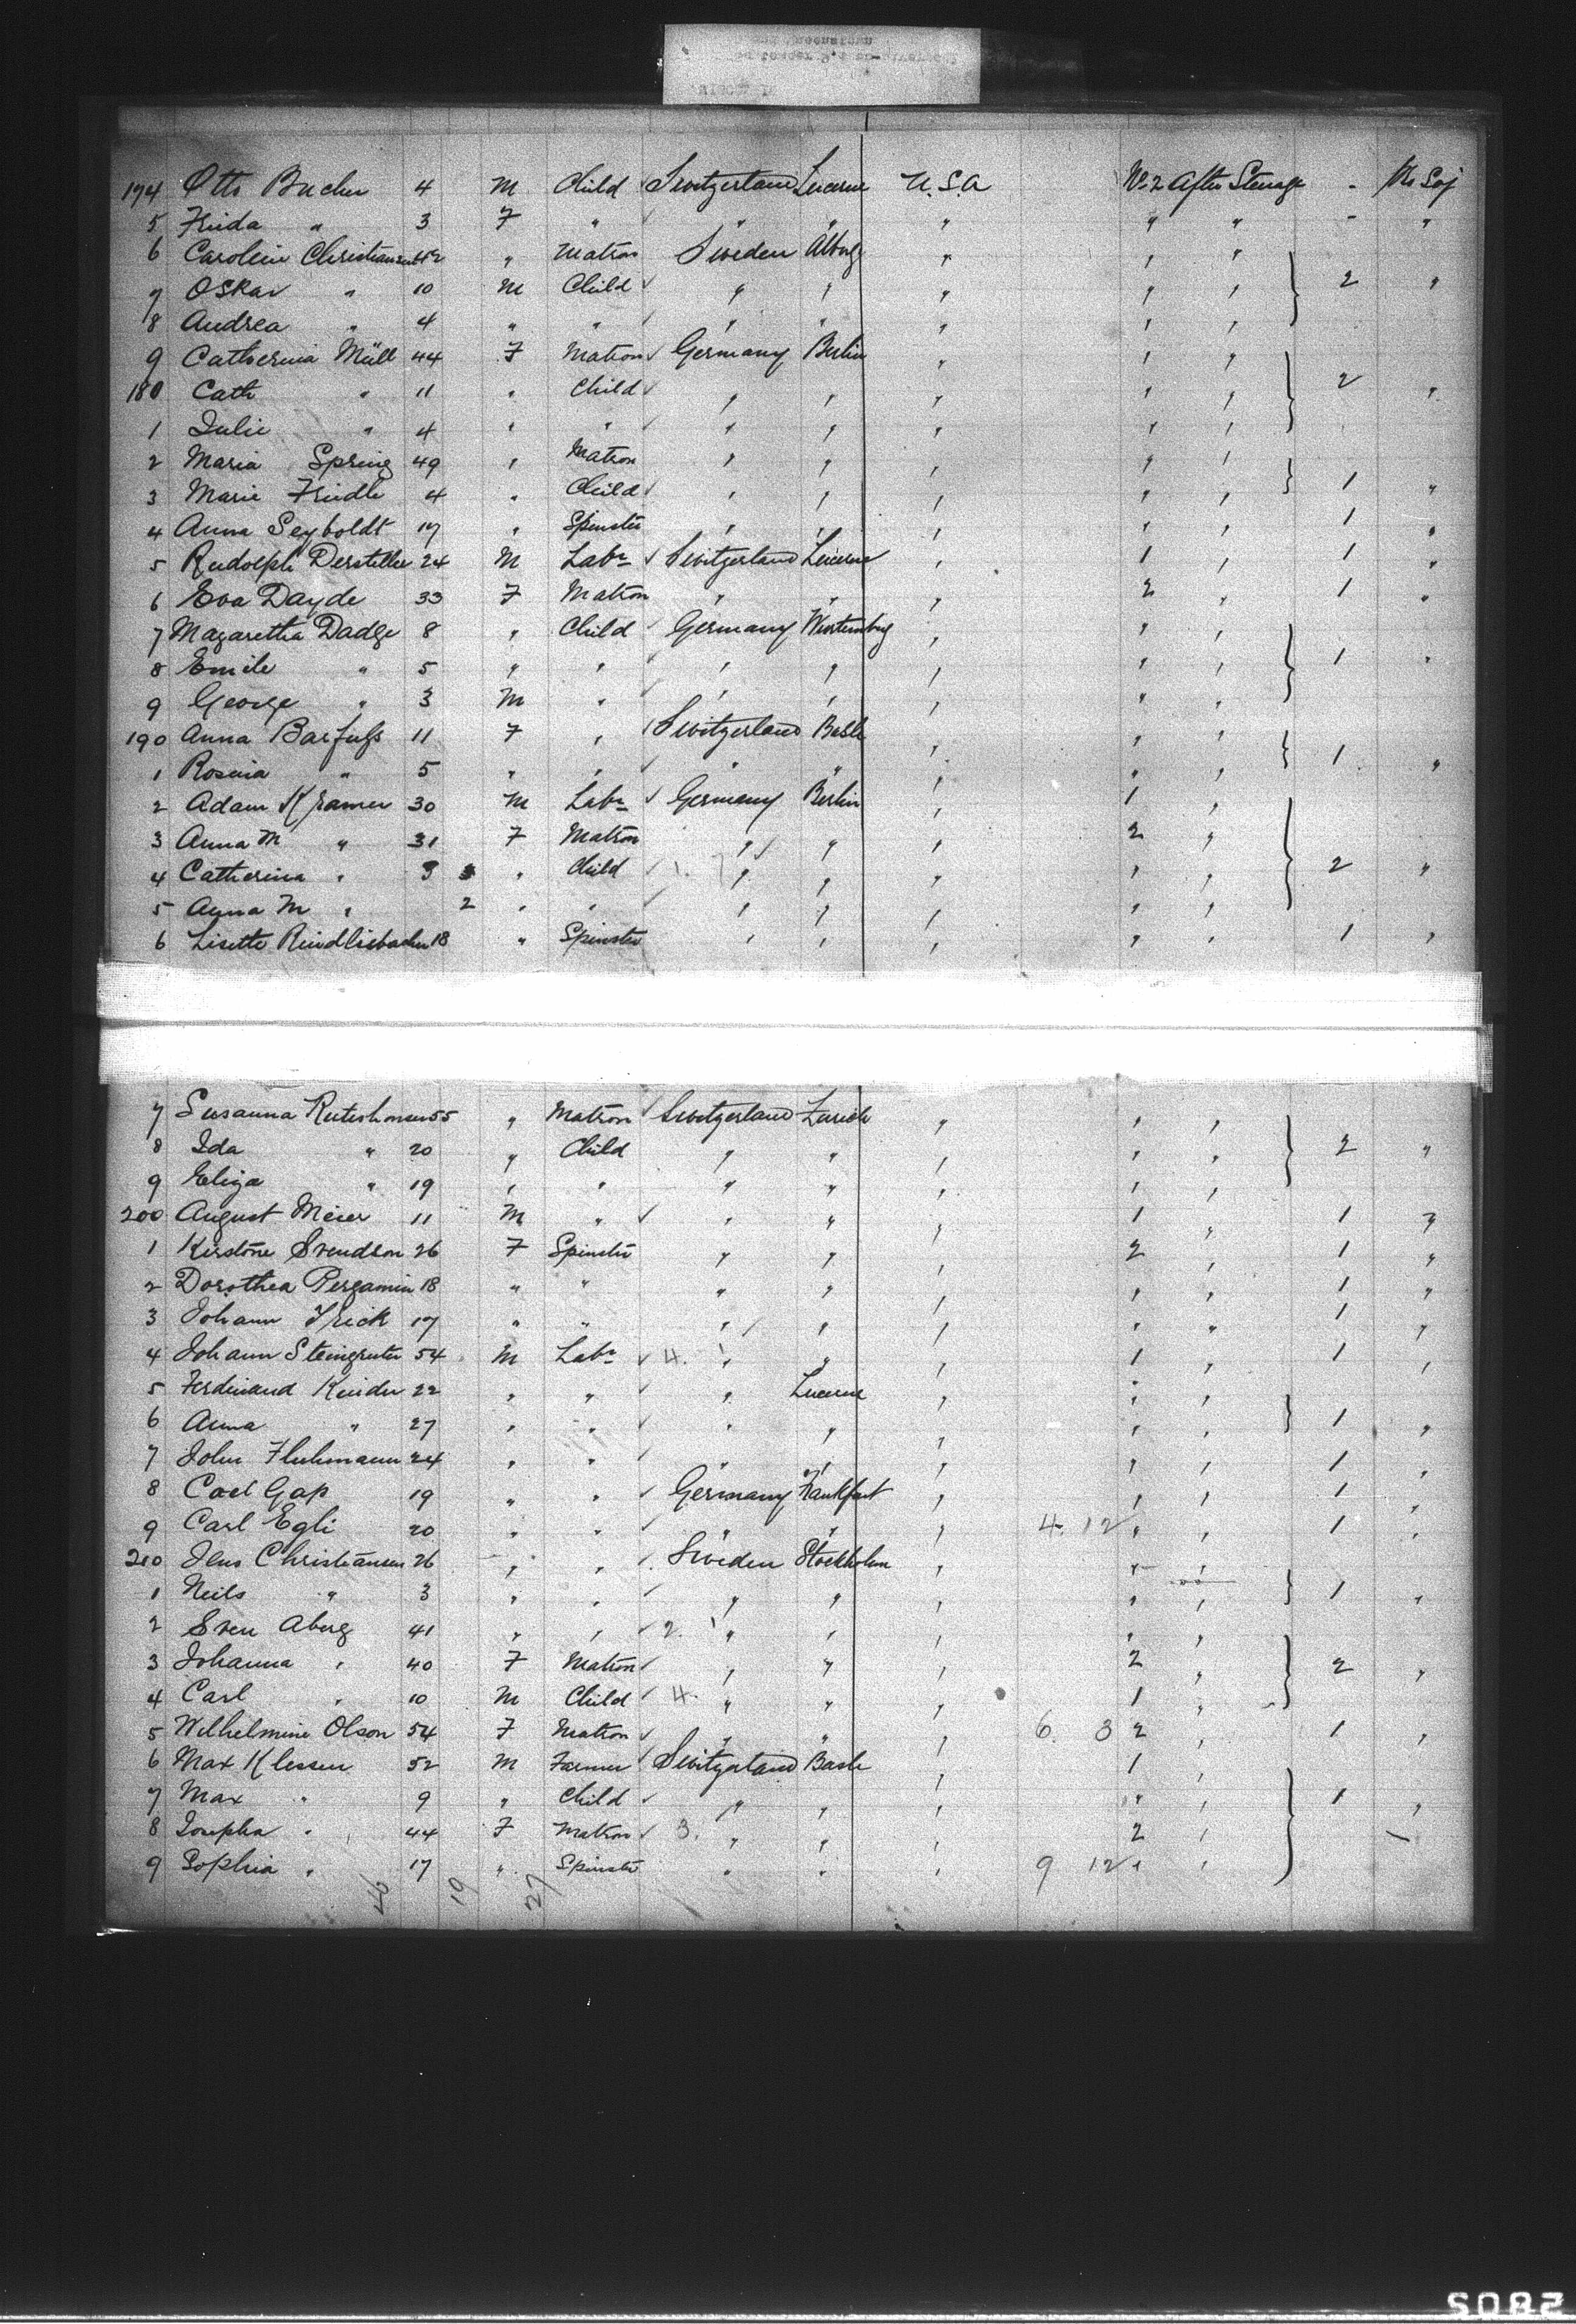 174 Otto Bucher 4 M Child Switzerland Lucerne U.S.A No 2 After Steerage -
5 Frida " 3 F " " " " " " - "
6 Caroline Christiansen 42 " Matron Sweden Alborg " " "
7 Oskar " 10 M Child " " " " " 2 "
8 Andrea " 4 " " " " " " "
9 Catherina Müll 44 F Matron Germany Berlin " " "
180 Cath " 11 " Child " " " " " 2 "
1 Julie " 4 " " " " " " "
2 Maria Spring 49 " Matron " " " " "
3 Marie Friedle 4 " Child " " " " " 1 "
4 Anna Seyboldt 17 " Spinster " " " " " 1 "
5 Rudolph 24 M Labr Switzerland Lucerne " 1 " 1 "
6 Eva Dayde 33 F Matron " " " 2 " 1 "
7 Magaretha Dadge 8 " Child Germany Wurtemburg " " "
8 Emile " 5 " " " " " " " 1 "
9 George " 3 M " " " " " "
190 Anna Barfuss 11 F " Switzerland Basle " " " 1
1 Rosina " 5 " " " " " " " "
2 Adam Kramer 30 M Labr Germany Berlin " 1 "
3 Anna M " 31 F Matron " " " 2 "
4 Catherina " " Child " " " " " 2 "
5 Anna M " 2 " " " " " " "
6 Lisette Rindlisbacher 18 " Spinster " " " " " 1 "
7 Susanna Rutishauser 55 " Matron Switzerland Zurich " " "
8 Ida " 20 " Child " " " " " 2 "
9 Eliza " 19 " " " " " " "
200 August Meier 11 M " " " " 1 " 1 "
1 Kirstine Svendson 26 F Spinster " " " 2 " 1 "
2 Dorothea Pergamin 18 " " " " " " " 1 "
3 Johann Frick 17 " " " " " " " 1 "
4 Johann Steingruter 54 M Labr 4. " " " 1 " 1 "
5 Ferdinand Kinder 22 " " " Lucerne " " "
6 Anna " 27 " " " " " " " 1 "
7 John Fluhmann 24 " " " " " " " 1 "
8 Carl Gap 19 " " Germany Frankfurt " " " 1 "
9 Carl Egli 20 " " " " " 4. 12 " " 1 "
210 Jens Christiansen 26 " " Sweden Stockholm " " "
1 Neils " 3 " " " " " " " 1 "
2 Sven Aberg 41 " " 2. " " " " "
3 Johanna " 40 F Matron " " " 2 " 2 "
4 Carl " 10 M Child 4. " " " 1 "
5 Wilhelmine Olson 54 F Matron " " " 6. 3 2 " 1 "
6 Max Klessen 52 M Farmer Switzerland Basle " 1 "
7 Max " 9 " Child " " " " " 1 "
8 Josepha " 44 F Matron 3. " " " 2 "
9 Sophia " 17 " Spinster " " " 9 12 " "
46 19 27
5082